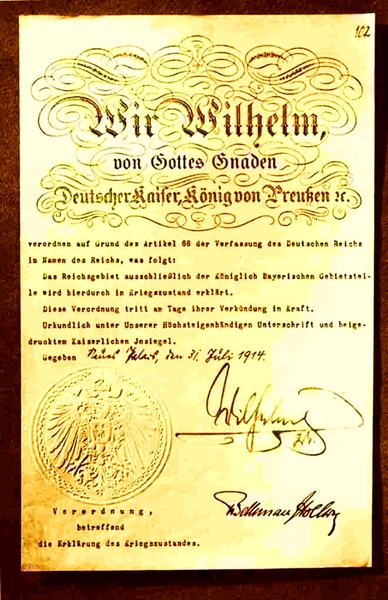 102
Wir Wilhelm,
von Gottes Gnaden
Deutscher Kaiser, König von Preußen ꝛc.
verordnen auf Grund des Artikel 68 der Verfassung des Deutschen Reichs
im Namen des Reichs, was folgt:
Das Reichsgebiet ausschließlich der Königlich Bayerischen Gebietstei-
le wird hierdurch in Kriegszustand erklärt.
Diese Verordnung tritt am Tage ihrer Verkündung in Kraft.
Urkundlich unter Unserer Höchsteigenhändigen Unterschrift und beige-
drucktem Kaiserlichen Jnsiegel.
Gegeben Neues Palais, den 31. Juli 1914.
Wilhelm
Bethmann Hollweg
Verordnung,
betreffend
die Erklärung des Kriegszustandes.